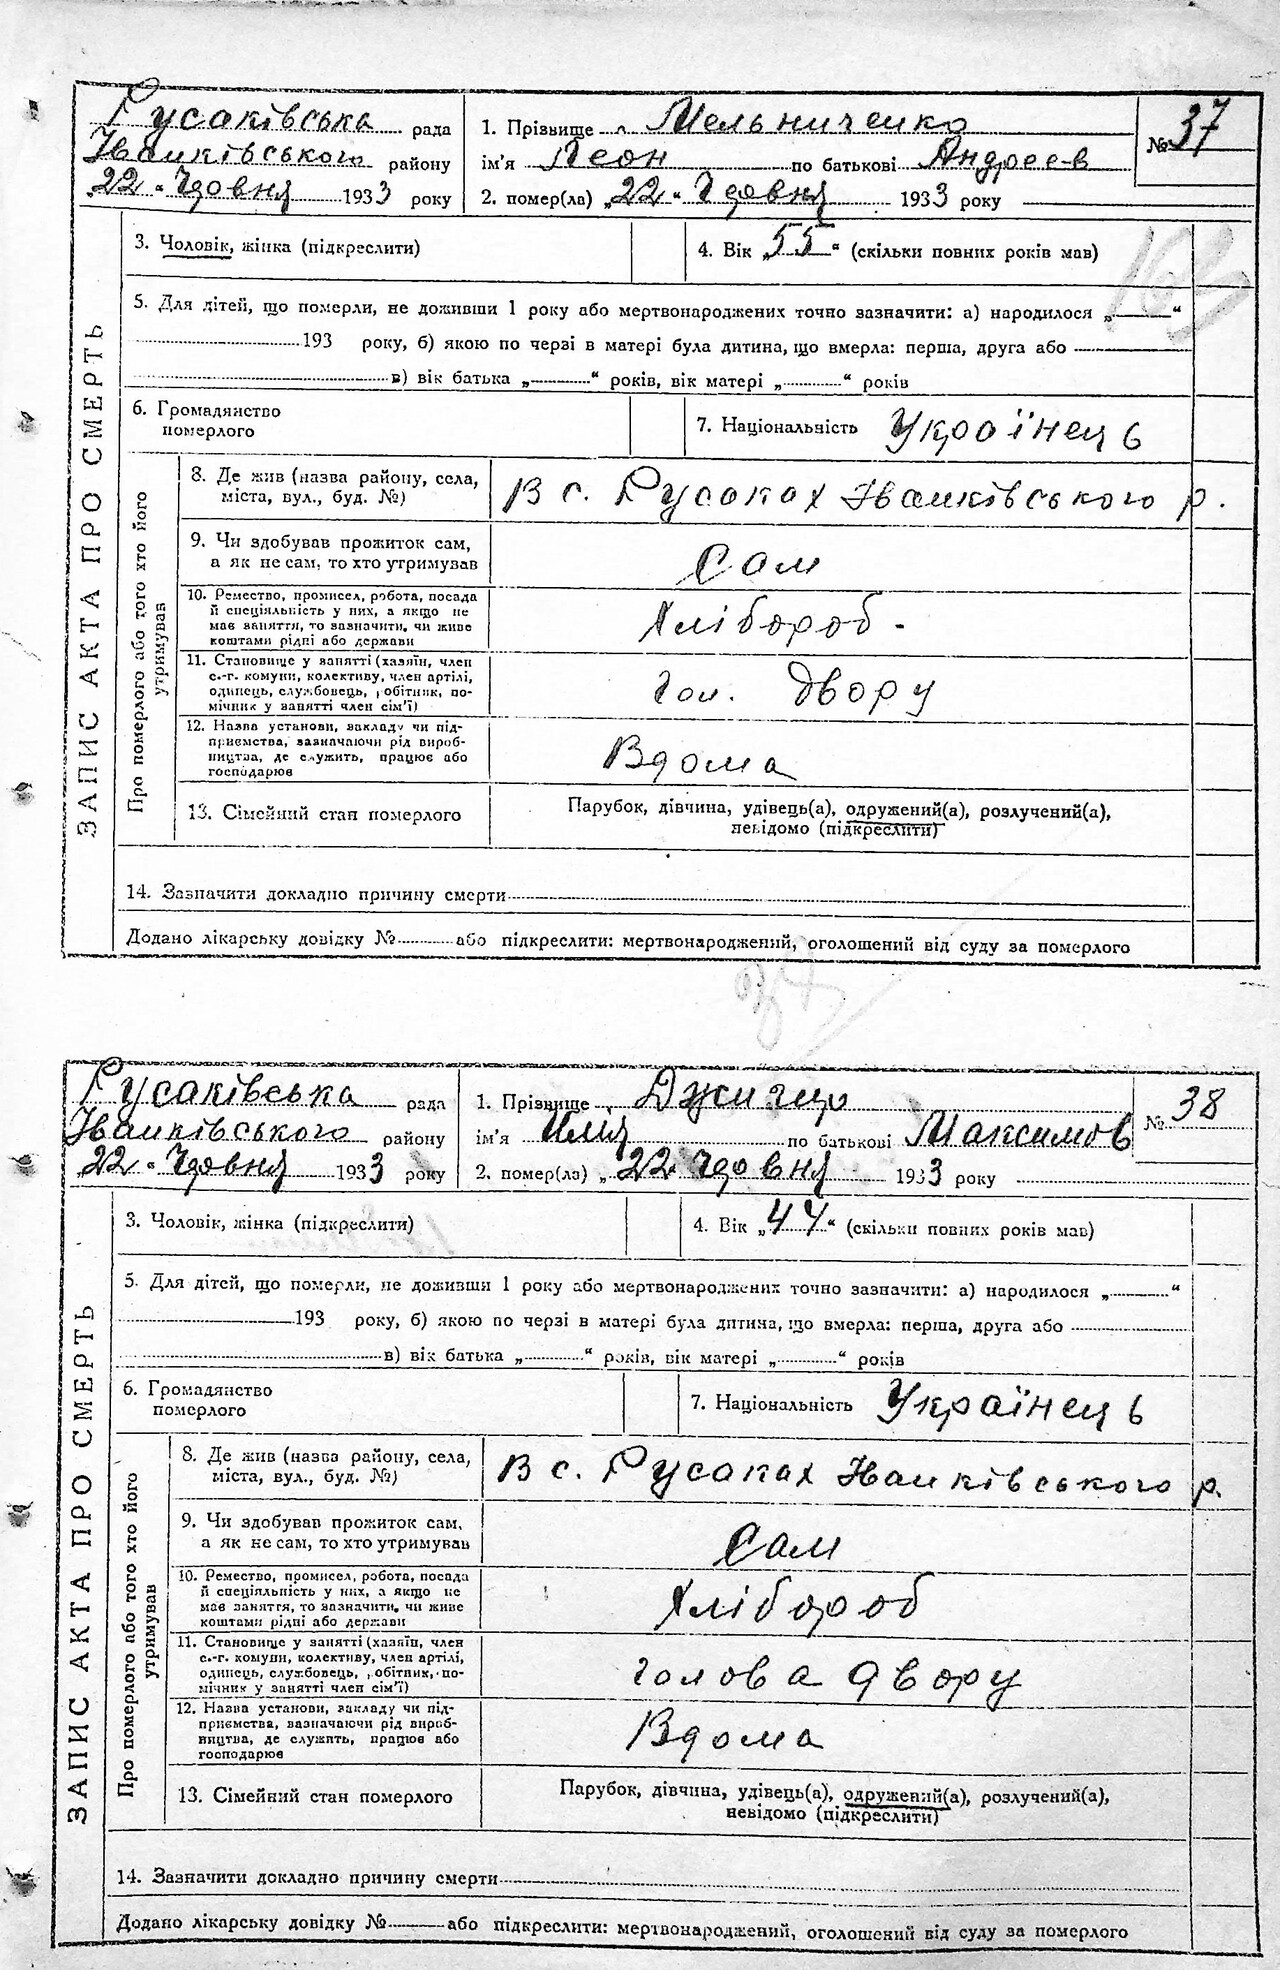 Русаківська рада
Іванківського району
„22" Червня 1933 року
1. Прізвище Мельниченко
ім'я Леон по батькові Андреєв
2. помер(ла) „22" Червня 1933 року
№ 37
ЗАПИС АКТА ПРО СМЕРТЬ
3. Чоловік, жінка (підкреслити)
4. Вік „55" (скільки повних років мав)
163
5. Для дітей, що померли, не доживши 1 року або мертвонароджених точно зазначити: а) народилося „ "
193 року, б) якою по черзі в матері була дитина, що вмерла: перша, друга або
в) вік батька „ " років, вік матері „ " років
6. Громадянство
померлого
7. Національність Українець
Про померлого або того хто його
утримував
8. Де жив (назва району, села,
міста, вул., буд. №)
В с. Русаках Іванківського р.
9. Чи здобував прожиток сам,
а як не сам, то хто утримував
Сам
10. Ремество, промисел, робота, посада
й спеціяльність у них, а якщо не
має заняття, то зазначити, чи живе
коштами рідні або держави
Хлібороб.
11. Становище у занятті (хазяїн, член
с.-г. комуни, колективу, член артілі,
одинець, службовець, робітник, по-
мічник у занятті член сім'ї)
гол. двору
12. Назва установи, закладу чи під-
приємства, зазначаючи рід вироб-
ництва, де служить, працює або
господарює
Вдома
13. Сімейний стан померлого
Парубок, дівчина, удівець(а), одружений(а), розлучений(а),
невідомо (підкреслити)
14. Зазначити докладно причину смерти
Додано лікарську довідку № або підкреслити: мертвонароджений, оголошений від суду за померлого
Русаківська рада
Іванківського району
„22" Червня 1933 року
1. Прізвище
ім'я Илля по батькові Максимов
2. помер(ла) „22" Червня 1933 року
№ 38
ЗАПИС АКТА ПРО СМЕРТЬ
3. Чоловік, жінка (підкреслити)
4. Вік „47" (скільки повних років мав)
5. Для дітей, що померли, не доживши 1 року або мертвонароджених точно зазначити: а) народилося „ "
193 року, б) якою по черзі в матері була дитина, що вмерла: перша, друга або
в) вік батька „ " років, вік матері „ " років
6. Громадянство
померлого
7. Національність Українець
Про померлого або того хто його
утримував
8. Де жив (назва району, села,
міста, вул., буд. №)
В с. Русаках Іванківського р.
9. Чи здобував прожиток сам,
а як не сам, то хто утримував
Сам
10. Ремество, промисел, робота, посада
й спеціяльність у них, а якщо не
має заняття, то зазначити, чи живе
коштами рідні або держави
Хлібороб
11. Становище у занятті (хазяїн, член
с.-г. комуни, колективу, член артілі,
одинець, службовець, робітник, по-
мічник у занятті член сім'ї)
голова двору
12. Назва установи, закладу чи під-
приємства, зазначаючи рід вироб-
ництва, де служить, працює або
господарює
Вдома
13. Сімейний стан померлого
Парубок, дівчина, удівець(а), одружений(а), розлучений(а),
невідомо (підкреслити)
14. Зазначити докладно причину смерти
Додано лікарську довідку № або підкреслити: мертвонароджений, оголошений від суду за померлого